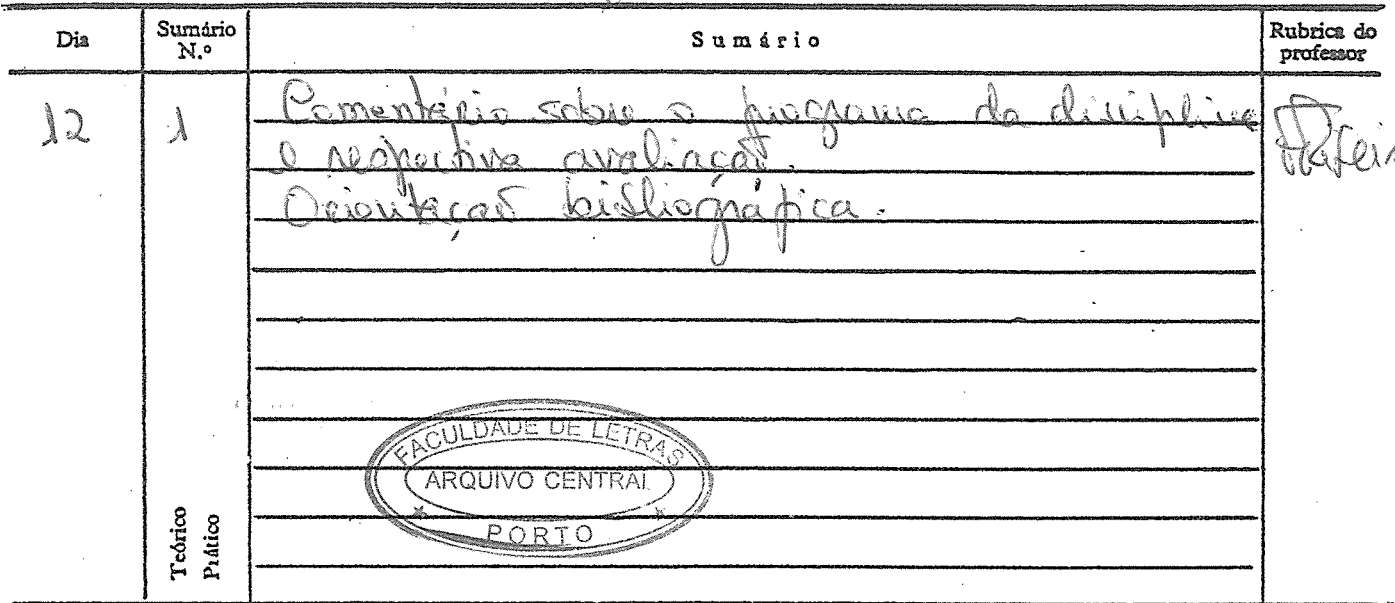 Dia
Sumário N.º
Sumário
Rubrica do professor
12
1
Comentário sobre o programa da disciplina
e respectiva avaliação.
Orientação bibliográfica.
FACULDADE DE LETRAS
ARQUIVO CENTRAL
PORTO
Teórico
Prático